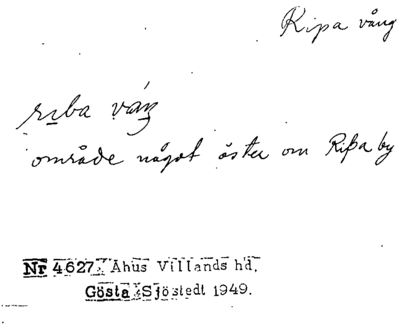 Ripa vång
riba váŋ
område något öster om Ripa by
Nr 4627. Åhus Villands hd.
Gösta Sjöstedt 1949.